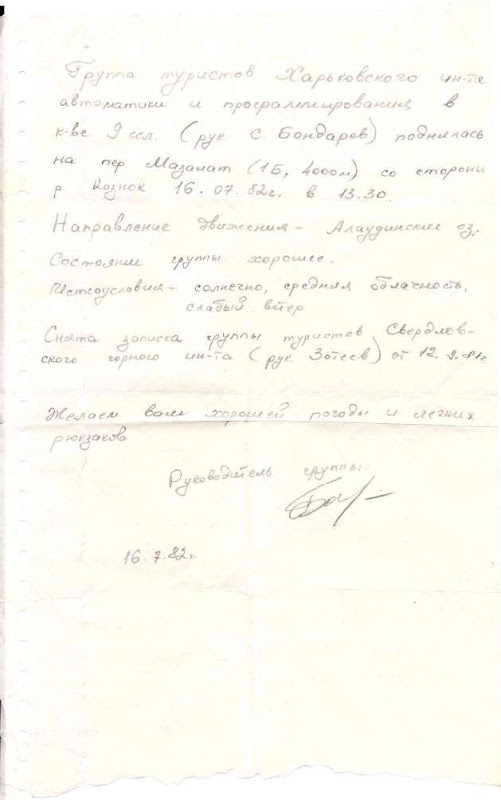 Группа туристов Харьковского ин-та
автоматики и программирования в
к-ве 9 чел. (рук. С. Бондаров) поднялась
на пер Мазалат (1Б, 4000м) со стороны
р 16.07.82г. в 13.30.
Направление движения - Алаудинские оз.
Состояние группы хорошее.
Метеоусловия - солнечно, средняя облачность,
слабый ветер
Снята записка группы туристов Свердлов-
ского горного ин-та (рук. Зотеев) от 12.8.81г
Желаем вам хорошей погоды и легких
рюкзаков
Руководитель группы:
16.7.82г.